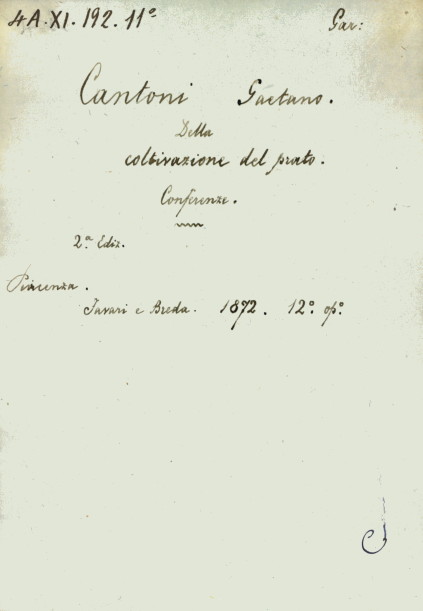 4A.XI.192.11º Gar:
Cantoni Gaetano.
Della
coltivazione del prato.
Conferenze.
2.ª Ediz.
Piacenza.
Tavari e Breda. 1872. 12º. op.º